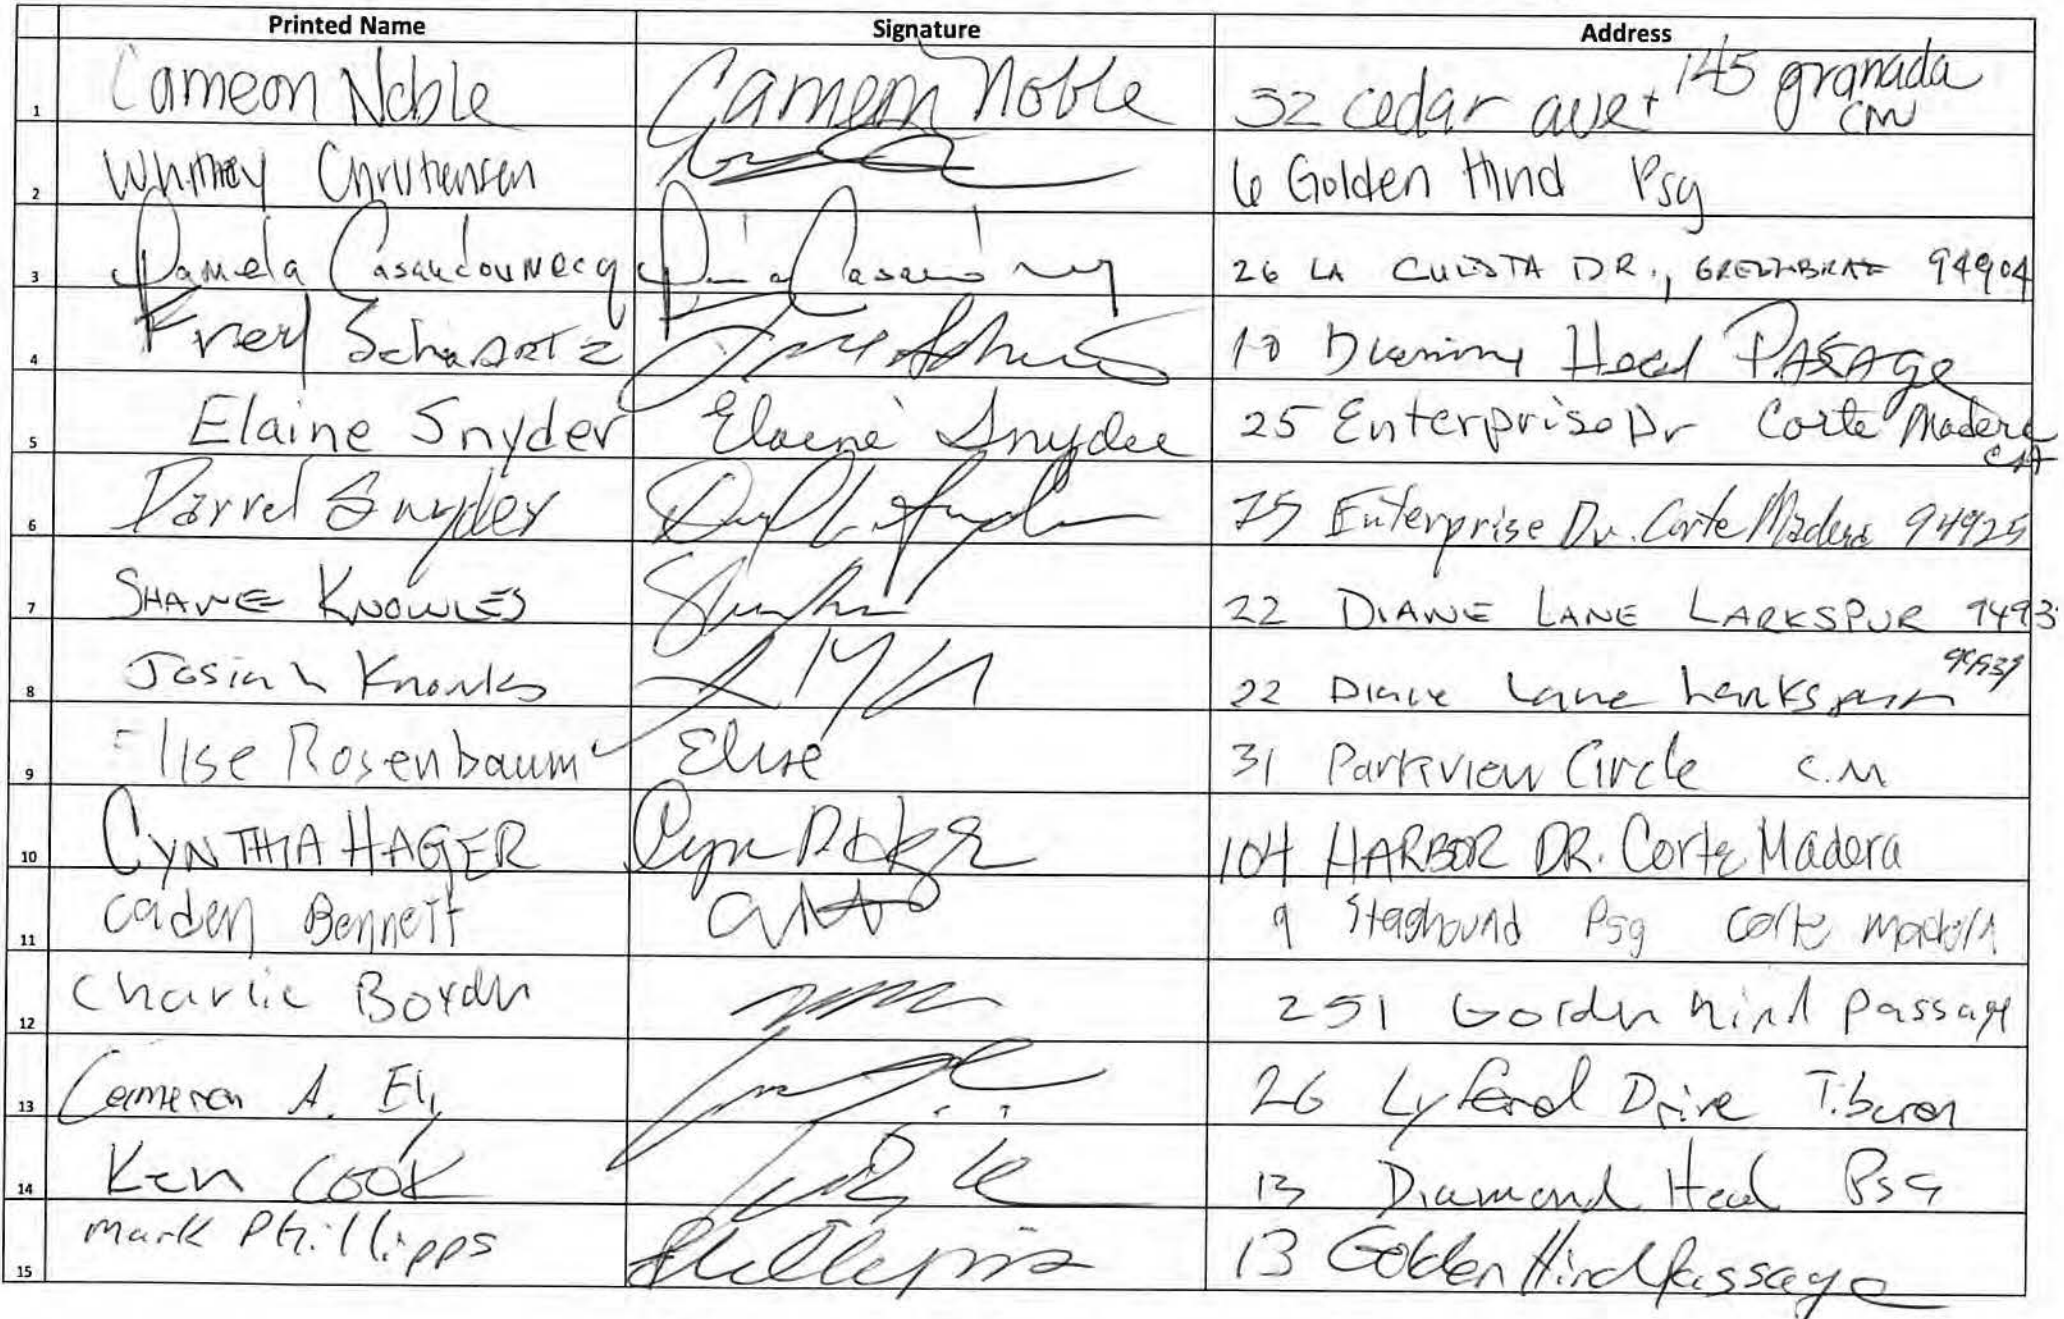 Printed Name Signature Address
1 Cameon Noble Cameon Noble 32 cedar ave + 145 granada CM
2 Whitney Christensen 6 Golden Hind Psg
3 Pamela Casaudoumecq 26 LA CUESTA DR., GREENBRAE 94904
4 Fred Schwartz 10 Head PASAGe
5 Elaine Snyder Elaine Snyder 25 Enterprise Dr Corte Madera CA
6 Darrel Snyder Enterprise Dr. Corte Madera 94925
7 SHANE KNOWLES 22 DIANE LANE LARKSPUR
8 Josiah Knowles 22 Diane Lane Larkspur
9 Elise Rosenbaum Elise 31 Parkview Circle C.M
10 CYNTHIA HAGER 104 HARBOR DR. Corte Madera
11 Caden Bennett 9 Staghound Psg Corte Madera
12 Charlie 251 Golden hind passage
13 Cameron A. Ely 26 Lyford Drive Tiburon
14 Ken COOK 13 Diamond Head Psg
15 Mark Phillipps 13 Golden Hind Passage